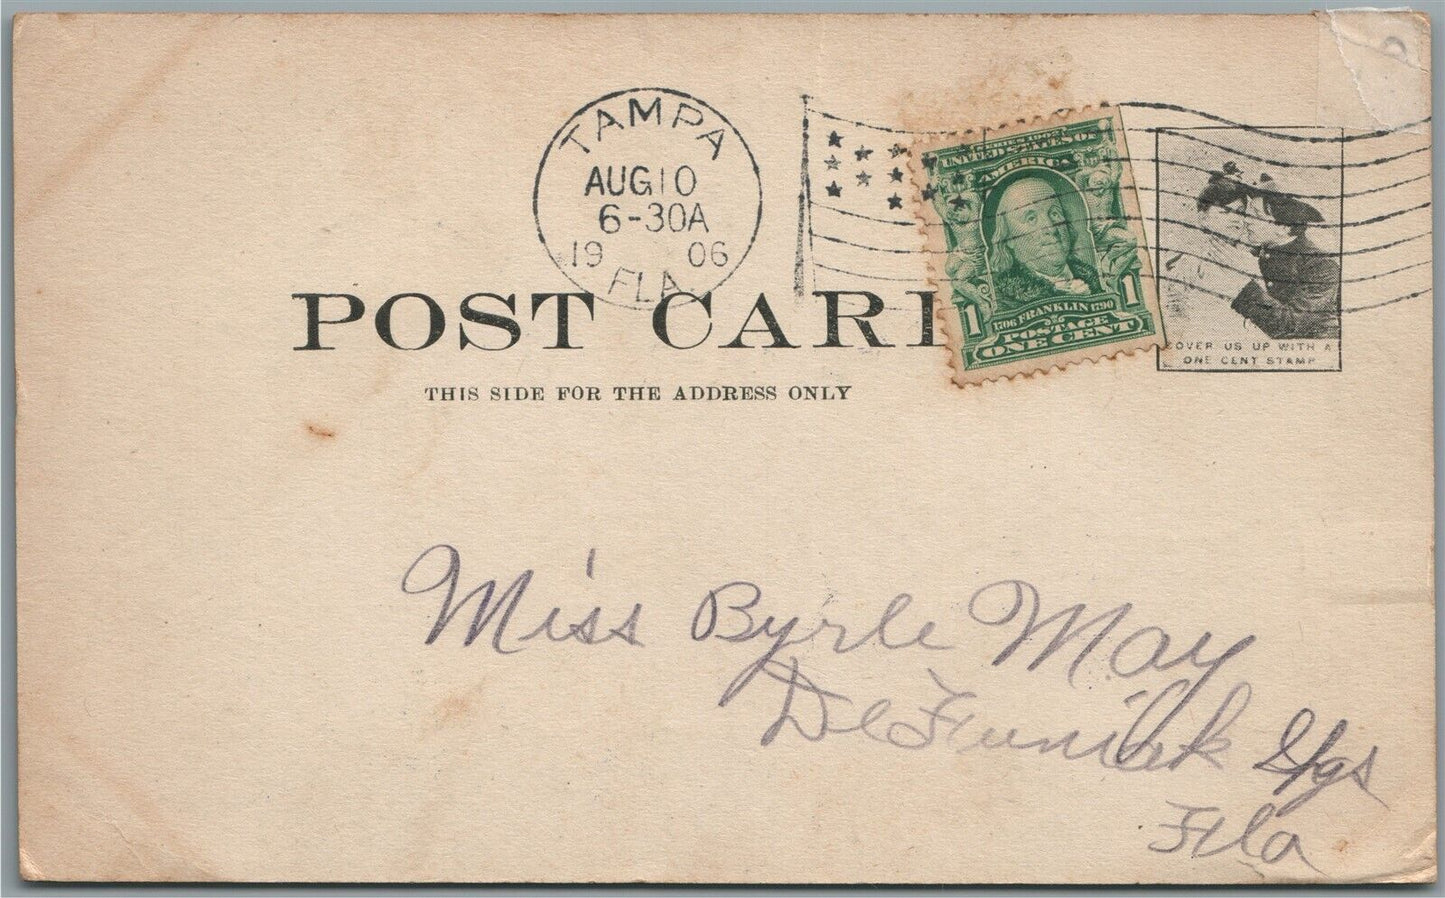 TAMPA
AUG 10
6-30A
1906
FLA.
SERIES 1902
UNITED STATES OF
AMERICA
1706 FRANKLIN 1790
POSTAGE
1 ONE CENT 1
COVER US UP WITH A
ONE CENT STAMP
POST CAR
THIS SIDE FOR THE ADDRESS ONLY
Miss Byrle May
DeFuniak Spgs
Fla